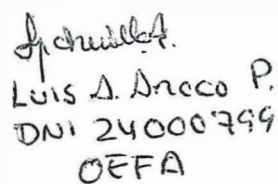 LUIS A. Ancco P.
DNI 24000799
OEFA